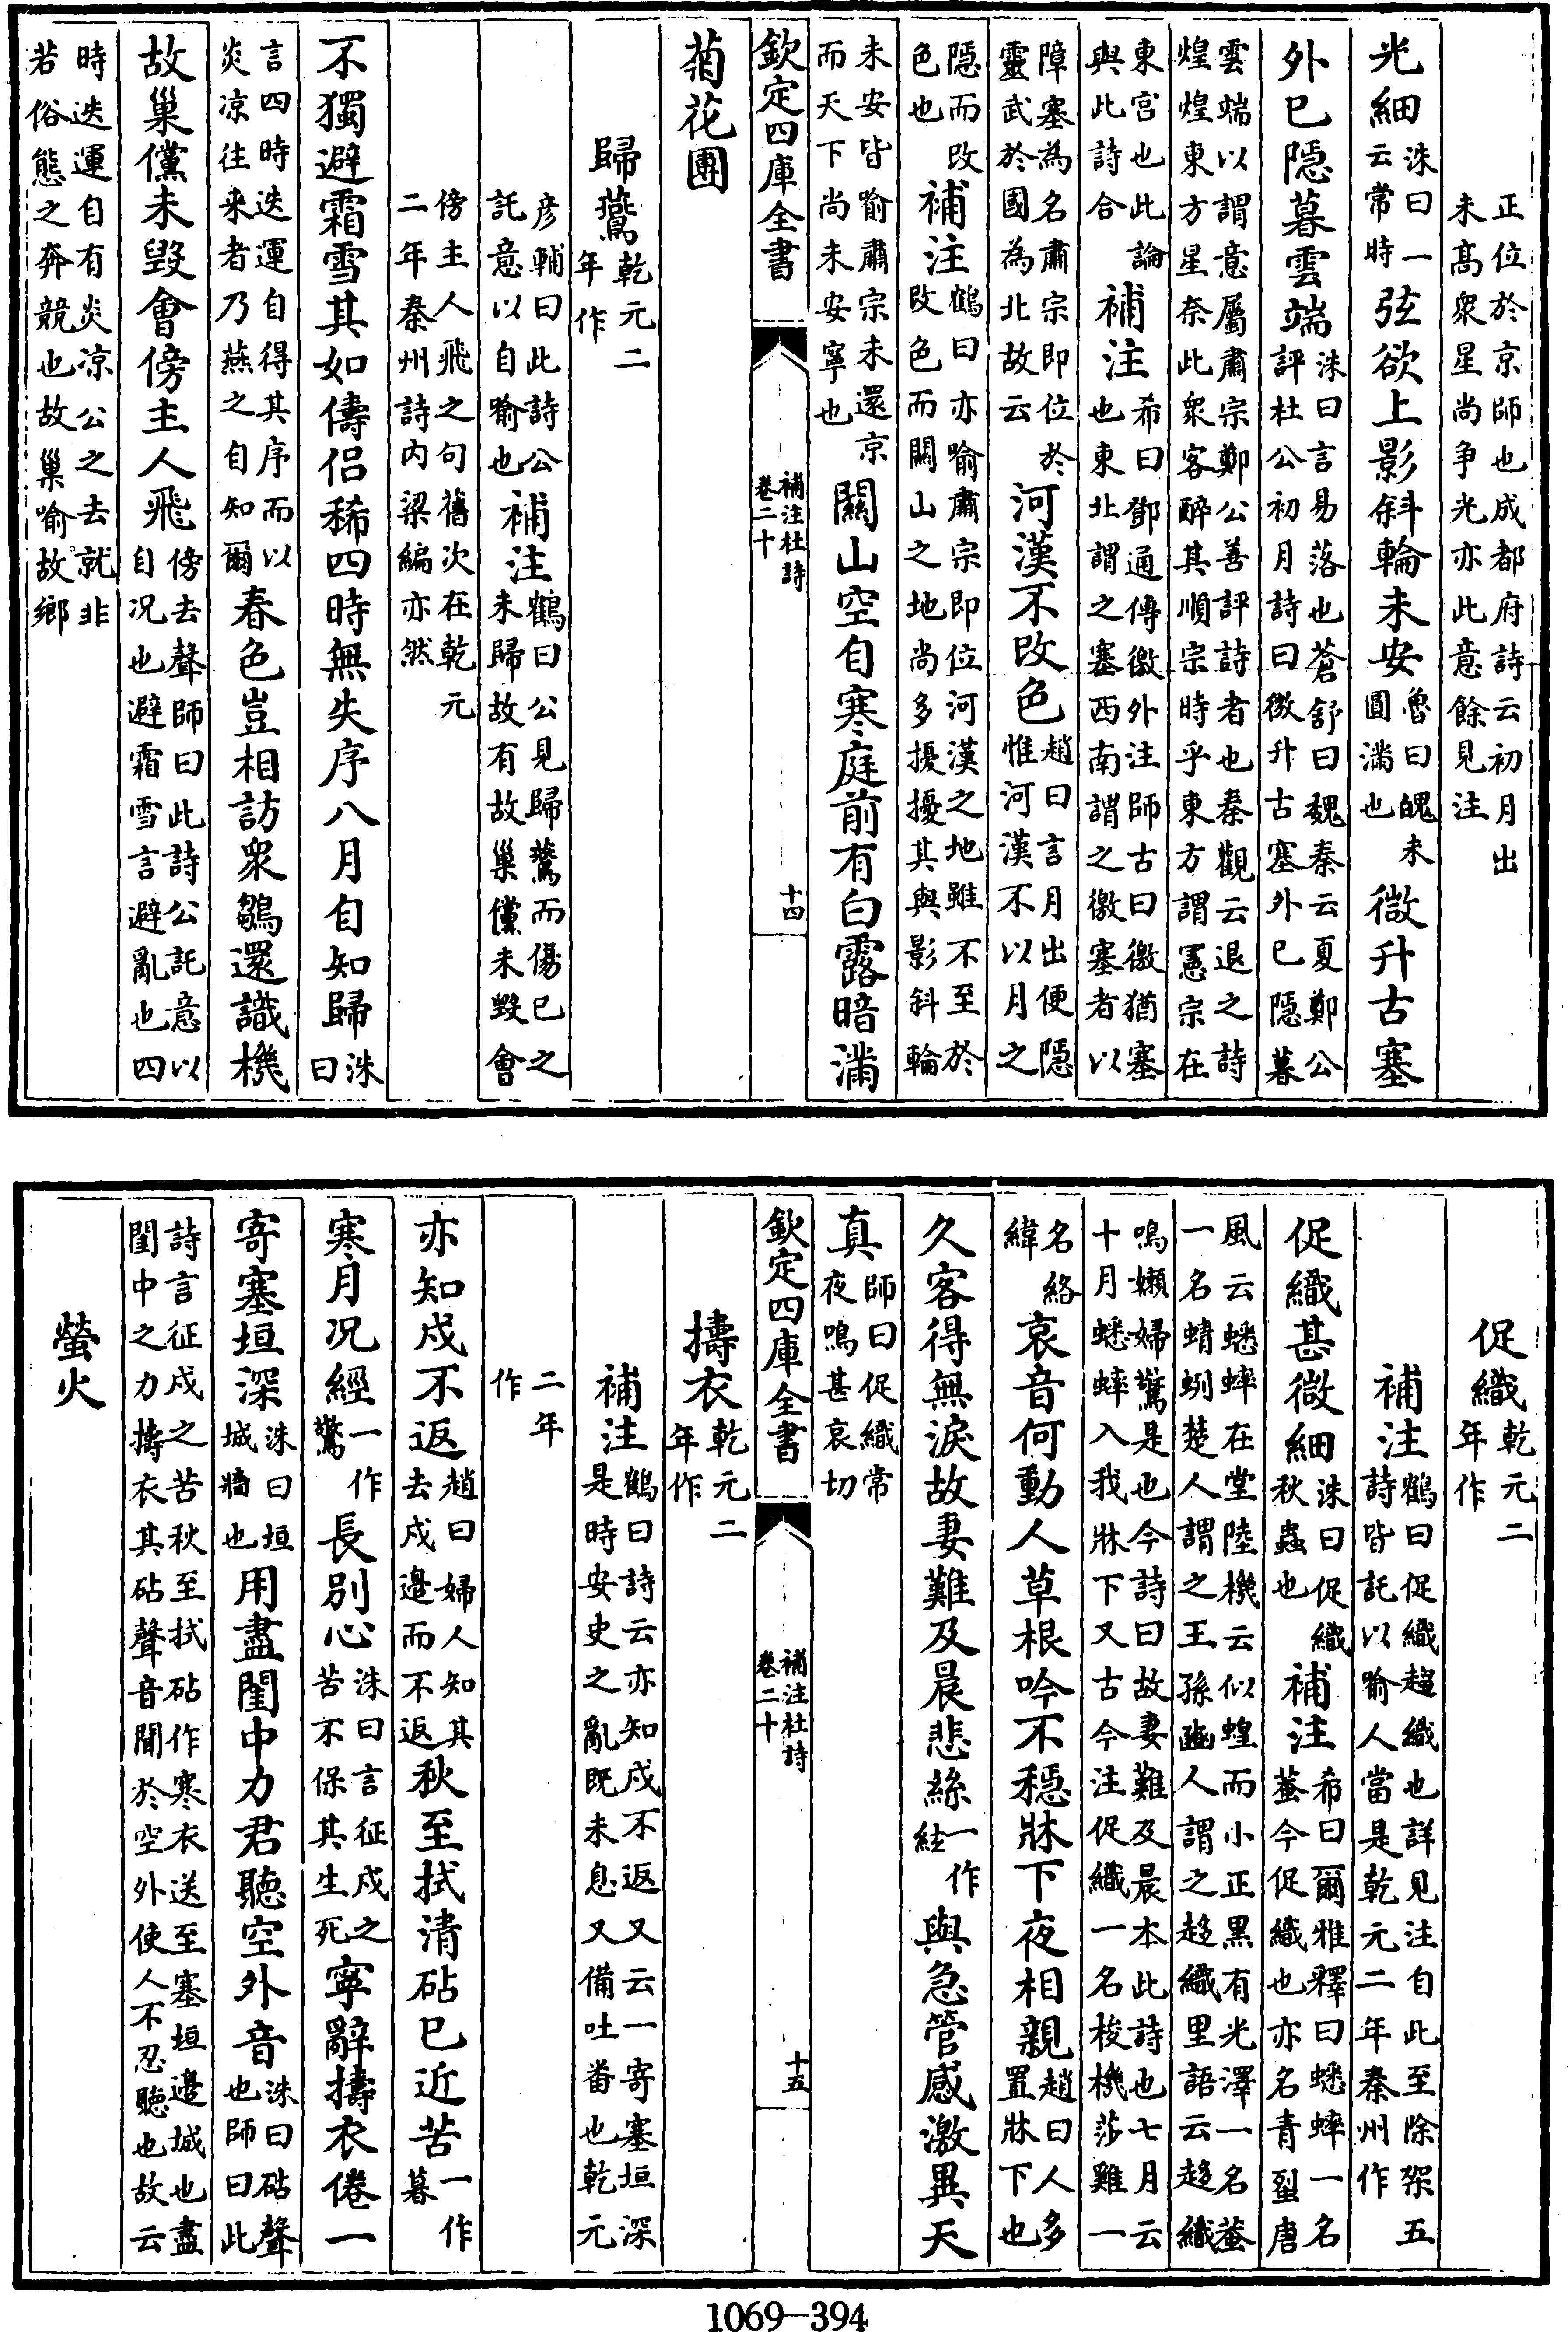 正位於京師也成都府詩云初月出
未髙衆星尚争光亦此意餘見注
光細洙曰一云常時弦欲上影斜輪未安魯曰魄未圓滿也微升古塞
外已隠暮雲端洙曰言易落也蒼舒曰魏秦云夏鄭公評杜公初月詩曰微升古塞外已隠暮
雲端以謂意屬肅宗鄭公善評詩者也秦觀云退之詩
煌煌東方星奈此衆客醉其順宗時乎東方謂憲宗在
東宫也此論與此詩合補注希曰鄧通傳徼外注師古曰徼猶塞也東北謂之塞西南謂之徼塞者以
障塞為名肅宗即位於靈武於國為北故云河漢不改色趙曰言月出便隠惟河漢不以月之
隠而改色也補注鶴曰亦喻肅宗即位河漢之地雖不至於改色而闗山之地尚多擾擾其與影斜輪
未安皆喻肅宗未還京而天下尚未安寧也闗山空自寒庭前有白露暗滿
欽定四庫全書
補注杜詩
卷二十
十四
菊花團
歸鷰乾元二年作
彦輔曰此詩公託意以自喻也補注鶴曰公見歸鷰而傷已之未歸故有故巢儻未毁會
傍主人飛之句舊次在乾元
二年秦州詩内梁編亦然
不獨避霜雪其如儔侣稀四時無失序八月自知歸洙曰
言四時迭運自得其序而以炎凉往来者乃燕之自知爾春色豈相訪衆雛還識機
故巢儻未毁會傍主人飛傍去聲師曰此詩公託意以自况也避霜雪言避亂也四
時迭運自有炎凉公之去就非
若俗態之奔競也故巢喻故鄉
促織乾元二年作
補注鶴曰促織趨織也詳見注自此至除架五詩皆託以喻人當是乾元二年秦州作
促織甚微細洙曰促織秋蟲也補注希曰爾雅釋曰蟋蟀一名蛬今促織也亦名青𧊿唐
風云蟋蟀在堂陸機云似蝗而小正黒有光澤一名蛬
一名蜻蛚楚人謂之王孫豳人謂之趍織里語云趍織
鳴嬾婦驚是也今詩曰故妻難及晨本此詩也七月云
十月蟋蟀入我牀下又古今注促織一名梭機莎雞一
名絡緯哀音何動人草根吟不穏牀下夜相親趙曰人多置牀下也
久客得無淚故妻難及晨悲絲一作絃與急管感激異天
真師曰促織常夜鳴甚哀切
欽定四庫全書
補注杜詩
卷二十
十五
擣衣乾元二年作
補注鶴曰詩云亦知戍不返又云一寄塞垣深是時安史之亂既未息又備吐番也乾元
二年作
亦知戍不返趙曰婦人知其去戍邊而不返秋至拭清砧已近苦一作暮
寒月况經一作驚長别心洙曰言征戍之苦不保其生死寧辭擣衣倦一
寄塞垣深洙曰垣城牆也用盡閨中力君聽空外音洙曰砧聲也師曰此
詩言征戍之苦秋至拭砧作寒衣送至塞垣邊城也盡
閨中之力擣衣其砧聲音聞於空外使人不忍聽也故云
螢火
1069-394